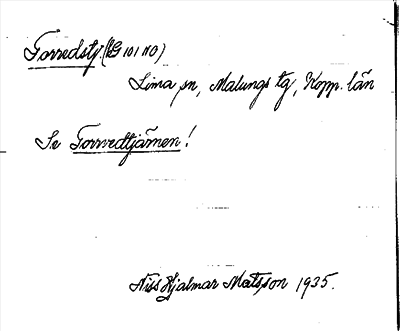 Torredstj. (kG 101 110)
Lima sn, Malungs tg, Kopp. län
Se Torrvedtjärnen!
Niss Hjalmar Matsson 1935.